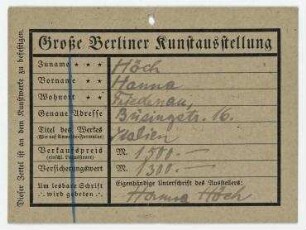 Große Berliner Kunstausstellung
Zuname * * * Höch
Vorname * * Hanna
Wohnort * * * Friedenau,
Genaue Adresse Büsingstr. 16.
Titel des Werkes Italien
Verkaufspreis M. 1500.—
Versicherungswert M. 1300.—
Um lesbare Schrift
wird gebeten.
Eigenhändige Unterschrift des Ausstellers:
Hanna Höch
Dieser Zettel ist an dem Kunstwerke zu befestigen.